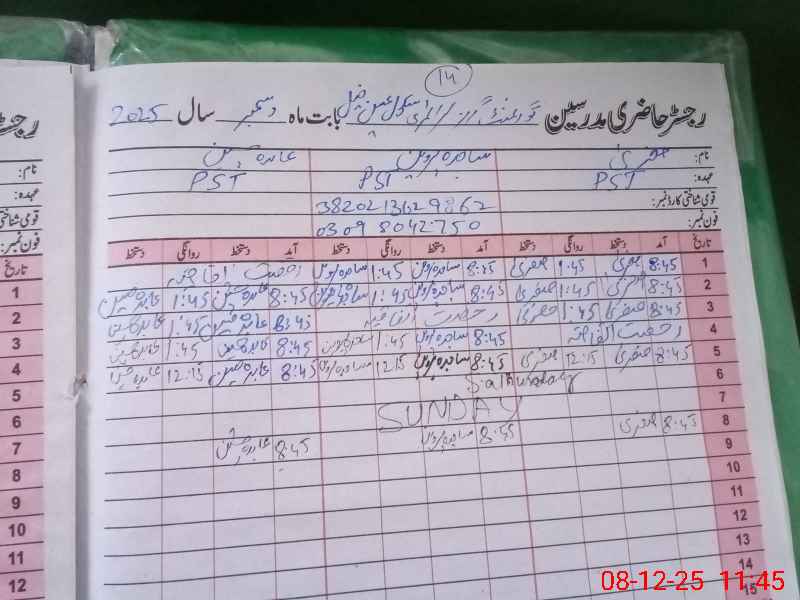 ۱۴
رجسٹر حاضری مدرسین گورنمنٹ گرلز پرائمری سکول بابت ماہ دسمبر سال 2025
نام: صغریٰ ساجدہ پروین عابدہ حسین
عہدہ: PST PST PST
قومی شناختی کارڈ نمبر: 3820213629862
فون نمبر: 0309 8042750
تاریخ آمد دستخط روانگی دستخط آمد دستخط روانگی دستخط آمد دستخط روانگی دستخط
1 8:45 صغریٰ 1:45 صغریٰ 8:45 ساجدہ پروین 1:45 ساجدہ پروین رخصت اتفاقیہ
2 8:45 صغریٰ 1:45 صغریٰ 8:45 ساجدہ پروین 1:45 ساجدہ پروین 8:45 عابدہ حسین 1:45 عابدہ حسین
3 8:45 صغریٰ 1:45 صغریٰ رخصت اتفاقیہ 8:45 عابدہ حسین 1:45 عابدہ حسین
4 رخصت 8:45 ساجدہ پروین 1:45 ساجدہ پروین 8:45 عابدہ حسین 1:45 عابدہ حسین
5 8:45 صغریٰ 12:15 صغریٰ 8:45 ساجدہ پروین 12:15 ساجدہ پروین 8:45 عابدہ حسین 12:15 عابدہ حسین
6 Sathurday
7 SUNDAY
8 8:45 صغریٰ 8:45 ساجدہ پروین 8:45 عابدہ حسین
9
10
11
12
13
14
15
رجسٹ
نام:
عہدہ:
قومی شناختی کا
فون نمبر:
تاریخ
1
2
3
4
5
6
7
8
9
10
11
12
08-12-25 11:45